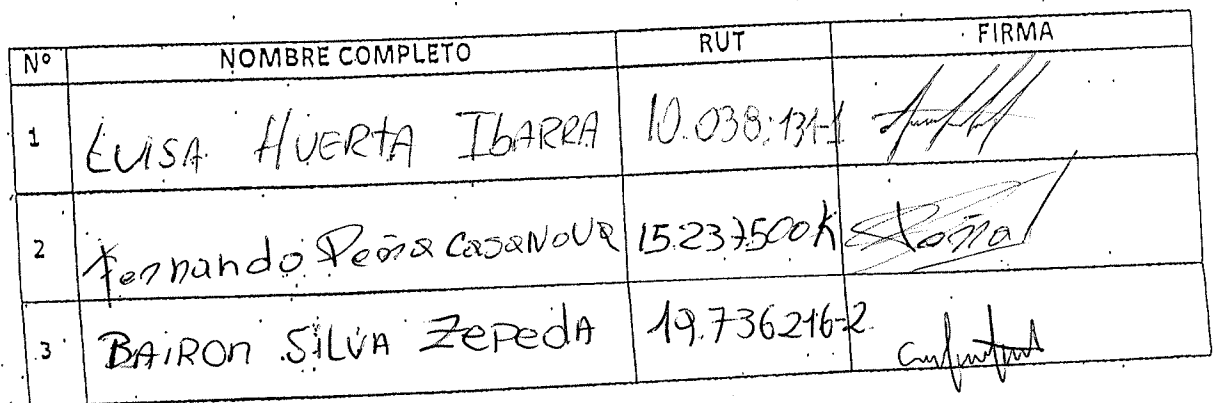 Nº NOMBRE COMPLETO RUT FIRMA
1 LUISA HUERTA IbARRA 10.038.131-1
2 Fernando Peña CasaNova 15.237500K Peña
3 BAIRON SILVA ZepedA 19.736216-2